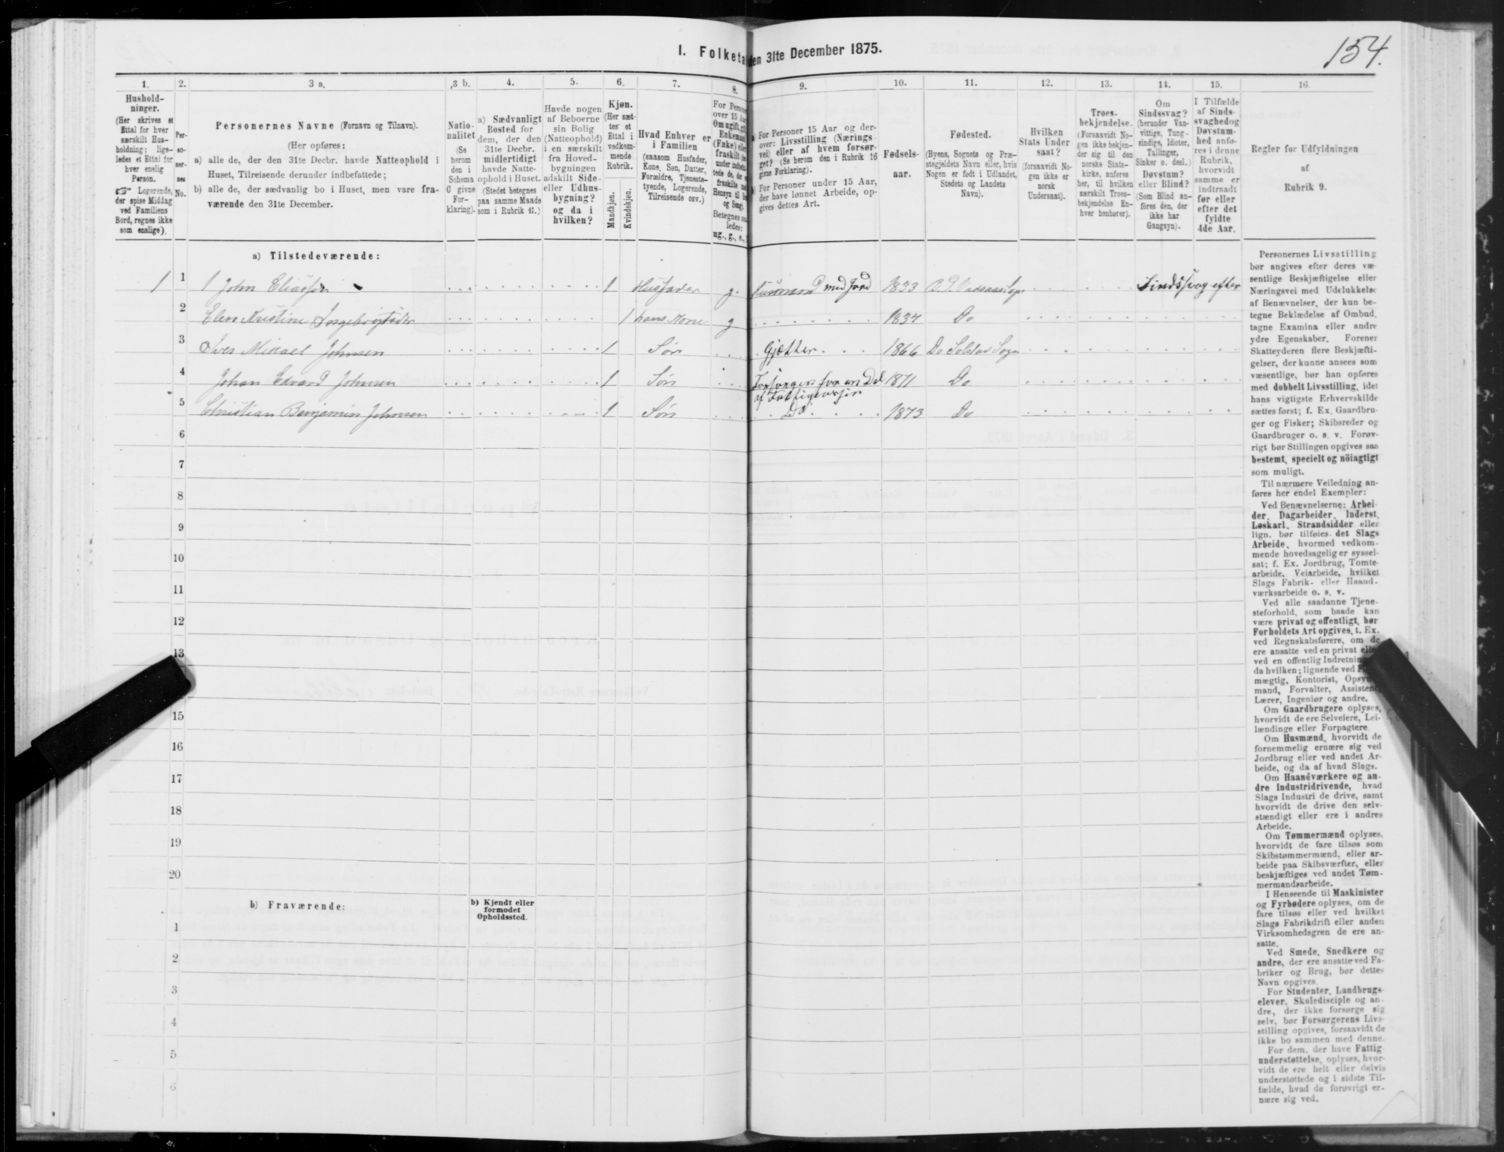 154.
I. Folketa en 31te December 1875.
1. 2. 3 a. 3 b. 4. 5. 6. 7. 8. 9. 10. 11. 12. 13. 14. 15. 16.
Hushold-
ninger.
(Her skrives et
Ettal for hver
særskilt Hus-
holdning; lige-
ledes et Ettal for
hver enslig
Person.
☞ Logerende,
der spise Middag
ved Familiens
Bord, regnes ikke
som enslige).
Per-
so-
ner-
nes
No.
Personernes Navne (Fornavn og Tilnavn).
(Her opføres:
a) alle de, der den 31te Decbr. havde Natteophold i
Huset, Tilreisende derunder indbefattede;
b) alle de, der sædvanlig bo i Huset, men vare fra-
værende den 31te December.
Natio-
nalitet
(Se
herom
den i
Schema
C givne
For-
klaring).
a) Sædvanligt
Bosted for
dem, der den
31te Decbr.
midlertidigt
havde Natte-
ophold i Huset.
(Stedet betegnes
paa samme Maade
som i Rubrik 11.)
Havde nogen
af Beboerne
sin Bolig
(Natteophold)
i en særskilt
fra Hoved-
bygningen
adskilt Side-
eller Udhus-
bygning?
og da i
hvilken?
Kjøn.
(Her sæt-
tes et
Ettal i
vedkom-
mende
Rubrik.
Mandkjøn.
Kvindekjøn.
Hvad Enhver er
i Familien
(saasom Husfader,
Kone, Søn, Datter,
Forældre, Tjeneste-
tyende, Logerende,
Tilreisende osv.)
For Person
over 15 Aar
Om ugift, gift
Enkemand
(Enke) eller
fraskilt
Betegnes
ledes:
ug., g., e.,
a For Personer 15 Aar og der-
over: Livsstilling (Nærings-
vei) eller af hvem forsør-
get? (Se herom den i Rubrik 16
givne Forklaring).
b For Personer under 15 Aar,
der have lønnet Arbeide, op-
gives dettes Art.
Fødsels-
aar.
Fødested.
(Byens, Sognets og Præ-
stegjeldets Navn eller, hvis
Nogen er født i Udlandet,
Stedets og Landets
Navn).
Hvilken
Stats Under
saat?
(forsaavidt No-
gen ikke er
norsk
Undersaat).
Troes-
bekjendelse.
(Forsaavidt No-
gen ikke bekjen-
der sig til den
norske Stats-
kirke, anføres
her, til hvilken
særskilt Troes-
bekjendelse En-
hver henhører).
Om
Sindssvag?
(herunder Van-
vittige, Tung-
sindige, Idioter,
Tullinger,
Sinker o. desl.)
Døvstum?
eller Blind?
(Som Blind an-
føres den, der
ikke har
Gangsyn).
I Tilfælde
af Sinds-
svaghed og
Døvstum-
hed anfø-
res i denne
Rubrik,
hvorvidt
samme er
indtraadt
før eller
efter det
fyldte
4de Aar.
Regler for Udfyldningen
af
Rubrik 9.
a) Tilstedeværende:
1 1 1 John Eliassen 1 Husfader g. Huusmand med Jord 1833 Sindssvag efter
2 Elen Kristine 1 hans Kone g 1834 Do
3 Mikael Johnsen 1 Søn Gjætter 1866 Do Sogn
4 Johan Edvard Johnsen 1 Søn 1871 Do
5 Christian Benjamin Johnsen 1 Søn Do 1873 Do
6
7
8
9
10
11
12
13
15
16
17
18
19
20
b) Fraværende:
b) Kjendt eller
formodet
Opholdssted.
1
2
3
4
5
6
Personernes Livsstilling
bør angives efter deres væ-
sentlige Beskjæftigelse eller
Næringsvei med Udelukkelse
af Benævnelser, der kun be-
tegne Beklædelse af Ombud,
tagne Examina eller andre
ydre Egenskaber. Forener
Skatteyderen flere Beskjæfti-
gelser, der kunne ansees som
væsentlige, bør han opføres
med dobbelt Livsstilling, idet
hans vigtigste Erhvervskilde
sættes først; f. Ex. Gaardbru-
ger og Fisker; Skibsreder og
Gaardbruger o. s. v. Forøv-
rigt bør Stillingen opgives saa
bestemt, specielt og nöiagtigt
som muligt.
Til nærmere Veiledning an-
føres her endel Exempler:
Ved Benævnelserne: Arbei-
der, Dagarbeider, Inderst,
Løskarl, Strandsidder eller
lign. bør tilføies det Slags
Arbeide, hvormed vedkom-
mende hovedsagelig er syssel-
sat; f. Ex. Jordbrug, Tomte-
arbeide, Veiarbeide, hvilket
Slags Fabrik- eller Haand-
værksarbeide o. s. v.
Ved alle saadanne Tjene-
steforhold, som baade kan
være privat og offentligt, bør
Forholdets Art opgives, t. Ex.
ved Regnskabsførere, om de
ere ansatte ved en privat eller
ved en offentlig Indretning
da hvilken; lignende ved
mægtig, Kontorist, Opsyns
mand, Forvalter, Assistent,
Lærer, Ingeniør og andre.
Om Gaardbrugere oplyses,
hvorvidt de ere Selveiere, Lei-
lændinge eller Forpagtere.
Om Husmænd, hvorvidt de
fornemmelig ernære sig ved
Jordbrug eller ved andet Ar-
beide, og da af hvad Slags.
Om Haandværkere og an-
dre Industridrivende, hvad
Slags Industri de drive, samt
hvorvidt de drive den selv-
stændigt eller ere i andres
Arbeide.
Om Tømmermænd oplyses,
hvorvidt de fare tilsøs som
Skibstømmermænd, eller ar-
beide paa Skibsværfter, eller
beskjæftiges ved andet Tøm-
mermandsarbeide.
I Henseende til Maskinister
og Fyrbødere oplyses, om de
fare tilsøs eller ved hvilket
Slags Fabrikdrift eller anden
Virksomhedsgren de ere an-
satte.
Ved Smede, Snedkere og
andre, der ere ansatte ved Fa-
briker og Brug, bør dettes
Navn opgives.
For Studenter, Landbrugs-
elever, Skoledisciple og an-
dre, der ikke forsørge sig
selv, bør Forsørgerens Livs-
stilling opgives, forsaavidt de
ikke bo sammen med denne.
For dem, der have Fattig
understøttelse, oplyses, hvor-
vidt de ere helt eller delvis
understøttede og i sidste Til-
fælde, hvad de forøvrigt er-
nære sig ved.